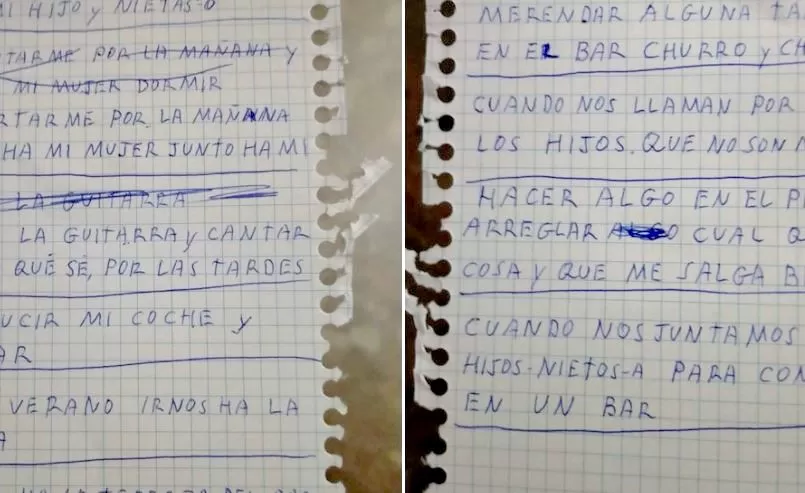 MI HIJO y NIETAS-O
TARME POR LA MAÑANA Y
MI MUJER DORMIR
RTARME POR LA MAÑANA
HA MI MUJER JUNTO HA MI
LA GUITARRA
LA GUITARRA y CANTAR
QUÉ SÉ, POR LAS TARDES
UCIR MI COCHE y
AR
VERANO IRNOS HA LA
A
MERENDAR ALGUNA TA
EN EL BAR CHURRO y CH
CUANDO NOS LLAMAN POR
LOS HIJOS. QUE NO SON
HACER ALGO EN EL P
ARREGLAR CUAL Q
COSA y QUE ME SALGA B
CUANDO NOS JUNTAMOS
HIJOS-NIETOS-A PARA COM
EN UN BAR